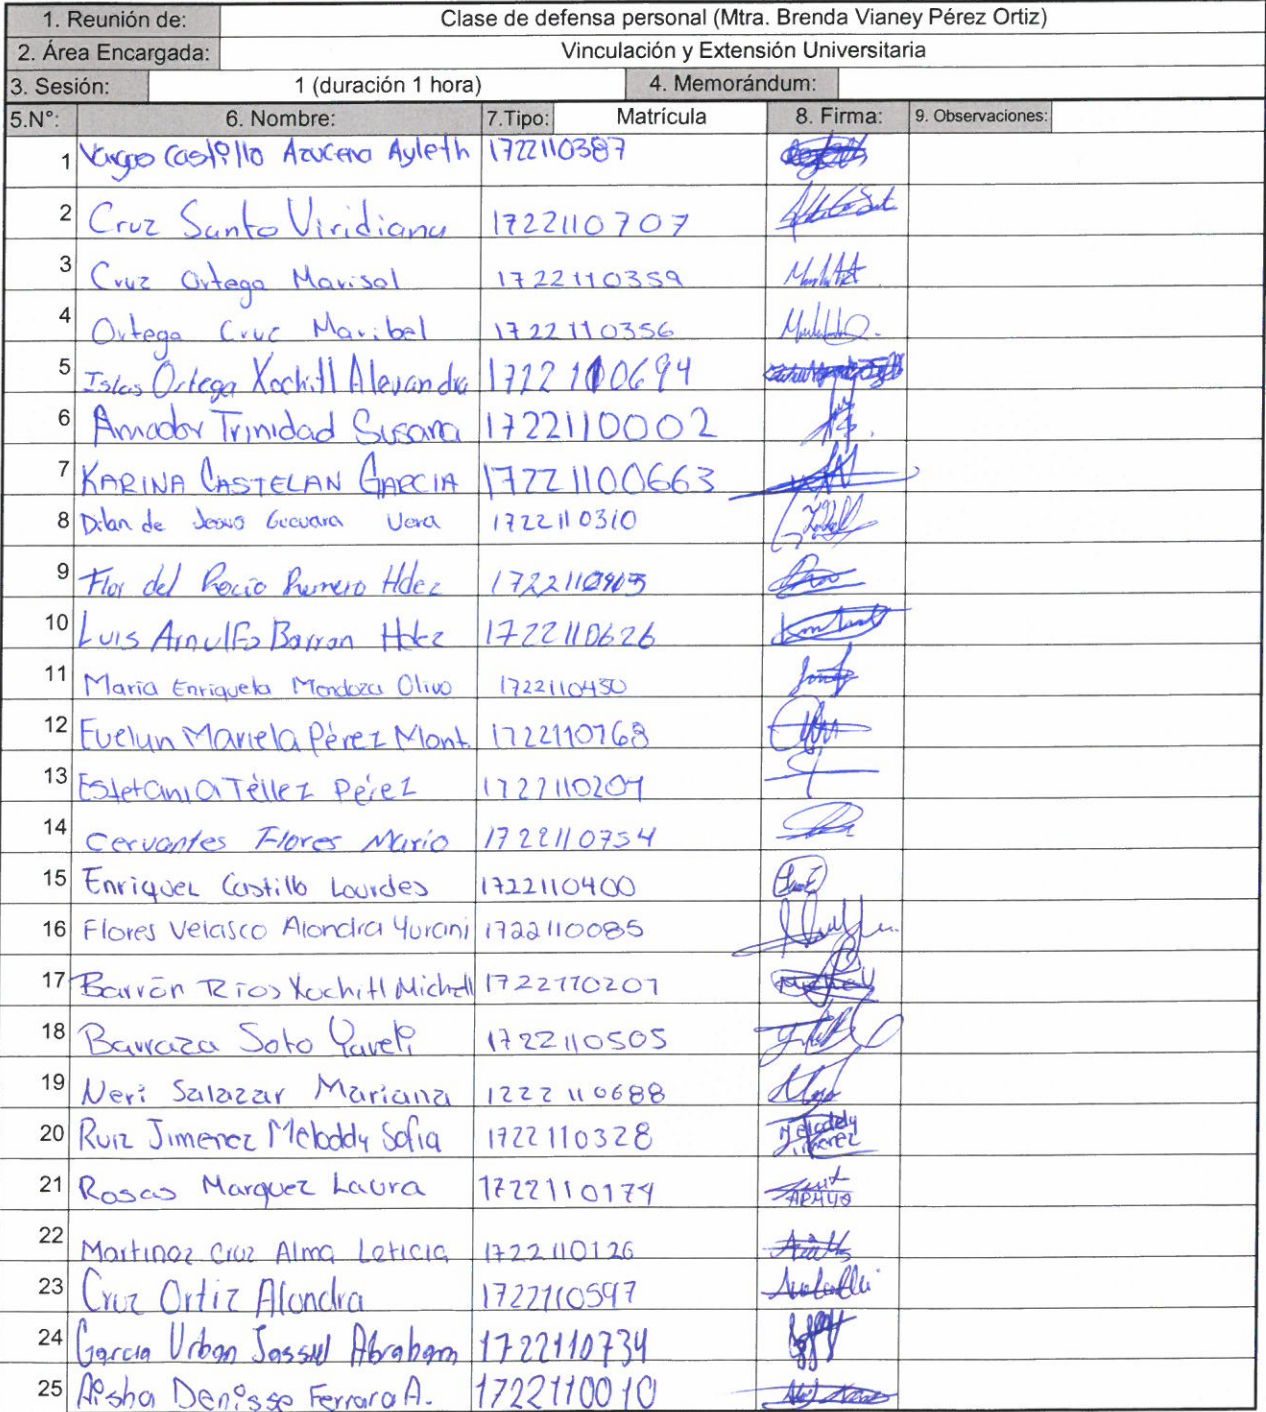 1. Reunión de: Clase de defensa personal (Mtra. Brenda Vianey Pérez Ortiz)
2. Área Encargada: Vinculación y Extensión Universitaria
3. Sesión: 1 (duración 1 hora) 4. Memorándum:
5.N°: 6. Nombre: 7.Tipo: Matrícula 8. Firma: 9. Observaciones:
1 Vargas Castillo Azucena Ayleth 1722110387
2 Cruz Santo Viridiana 1722110707
3 Cruz Ortega Marisol 1722110359
4 Ortega Cruz Maribel 1722110356
5 Islas Ortega Xochitl Alexandra 1722110694
6 Amador Trinidad Susana 1722110002
7 KARINA CASTELAN GARCIA 17221100663
8 Dilan de Jesus Guevara Vera 1722110310
9 Flor del Rocio Romero Hdez
10 Luis Arnulfo Barron Hdez 1722110626
11 Maria Enriqueta Mendoza Olivo 1722110430
12 Evelyn Mariela Pérez Mont. 1722110768
13 Estefania Téllez Pérez 1722110209
14 Cervantes Flores Mario 1722110754
15 Enriquez Castillo Lourdes 1722110400
16 Flores Velasco Alondra Yurani 1722110085
17 Barrón Rios Xochitl Michell 1722110201
18 Barraza Soto Yareli 1722110505
19 Neri Salazar Mariana 1222110688
20 Ruiz Jimenez Meloddy Sofia 1722110328 Meloddy Jimenez
21 Rosas Marquez Laura 1722110179
22 Martinez Cruz Alma Leticia 1722110126
23 Cruz Ortiz Alondra 1722110597
24 Garcia Urban Jassiel Abraham 1722110734
25 Aisha Denisse Ferrara A. 1722110010